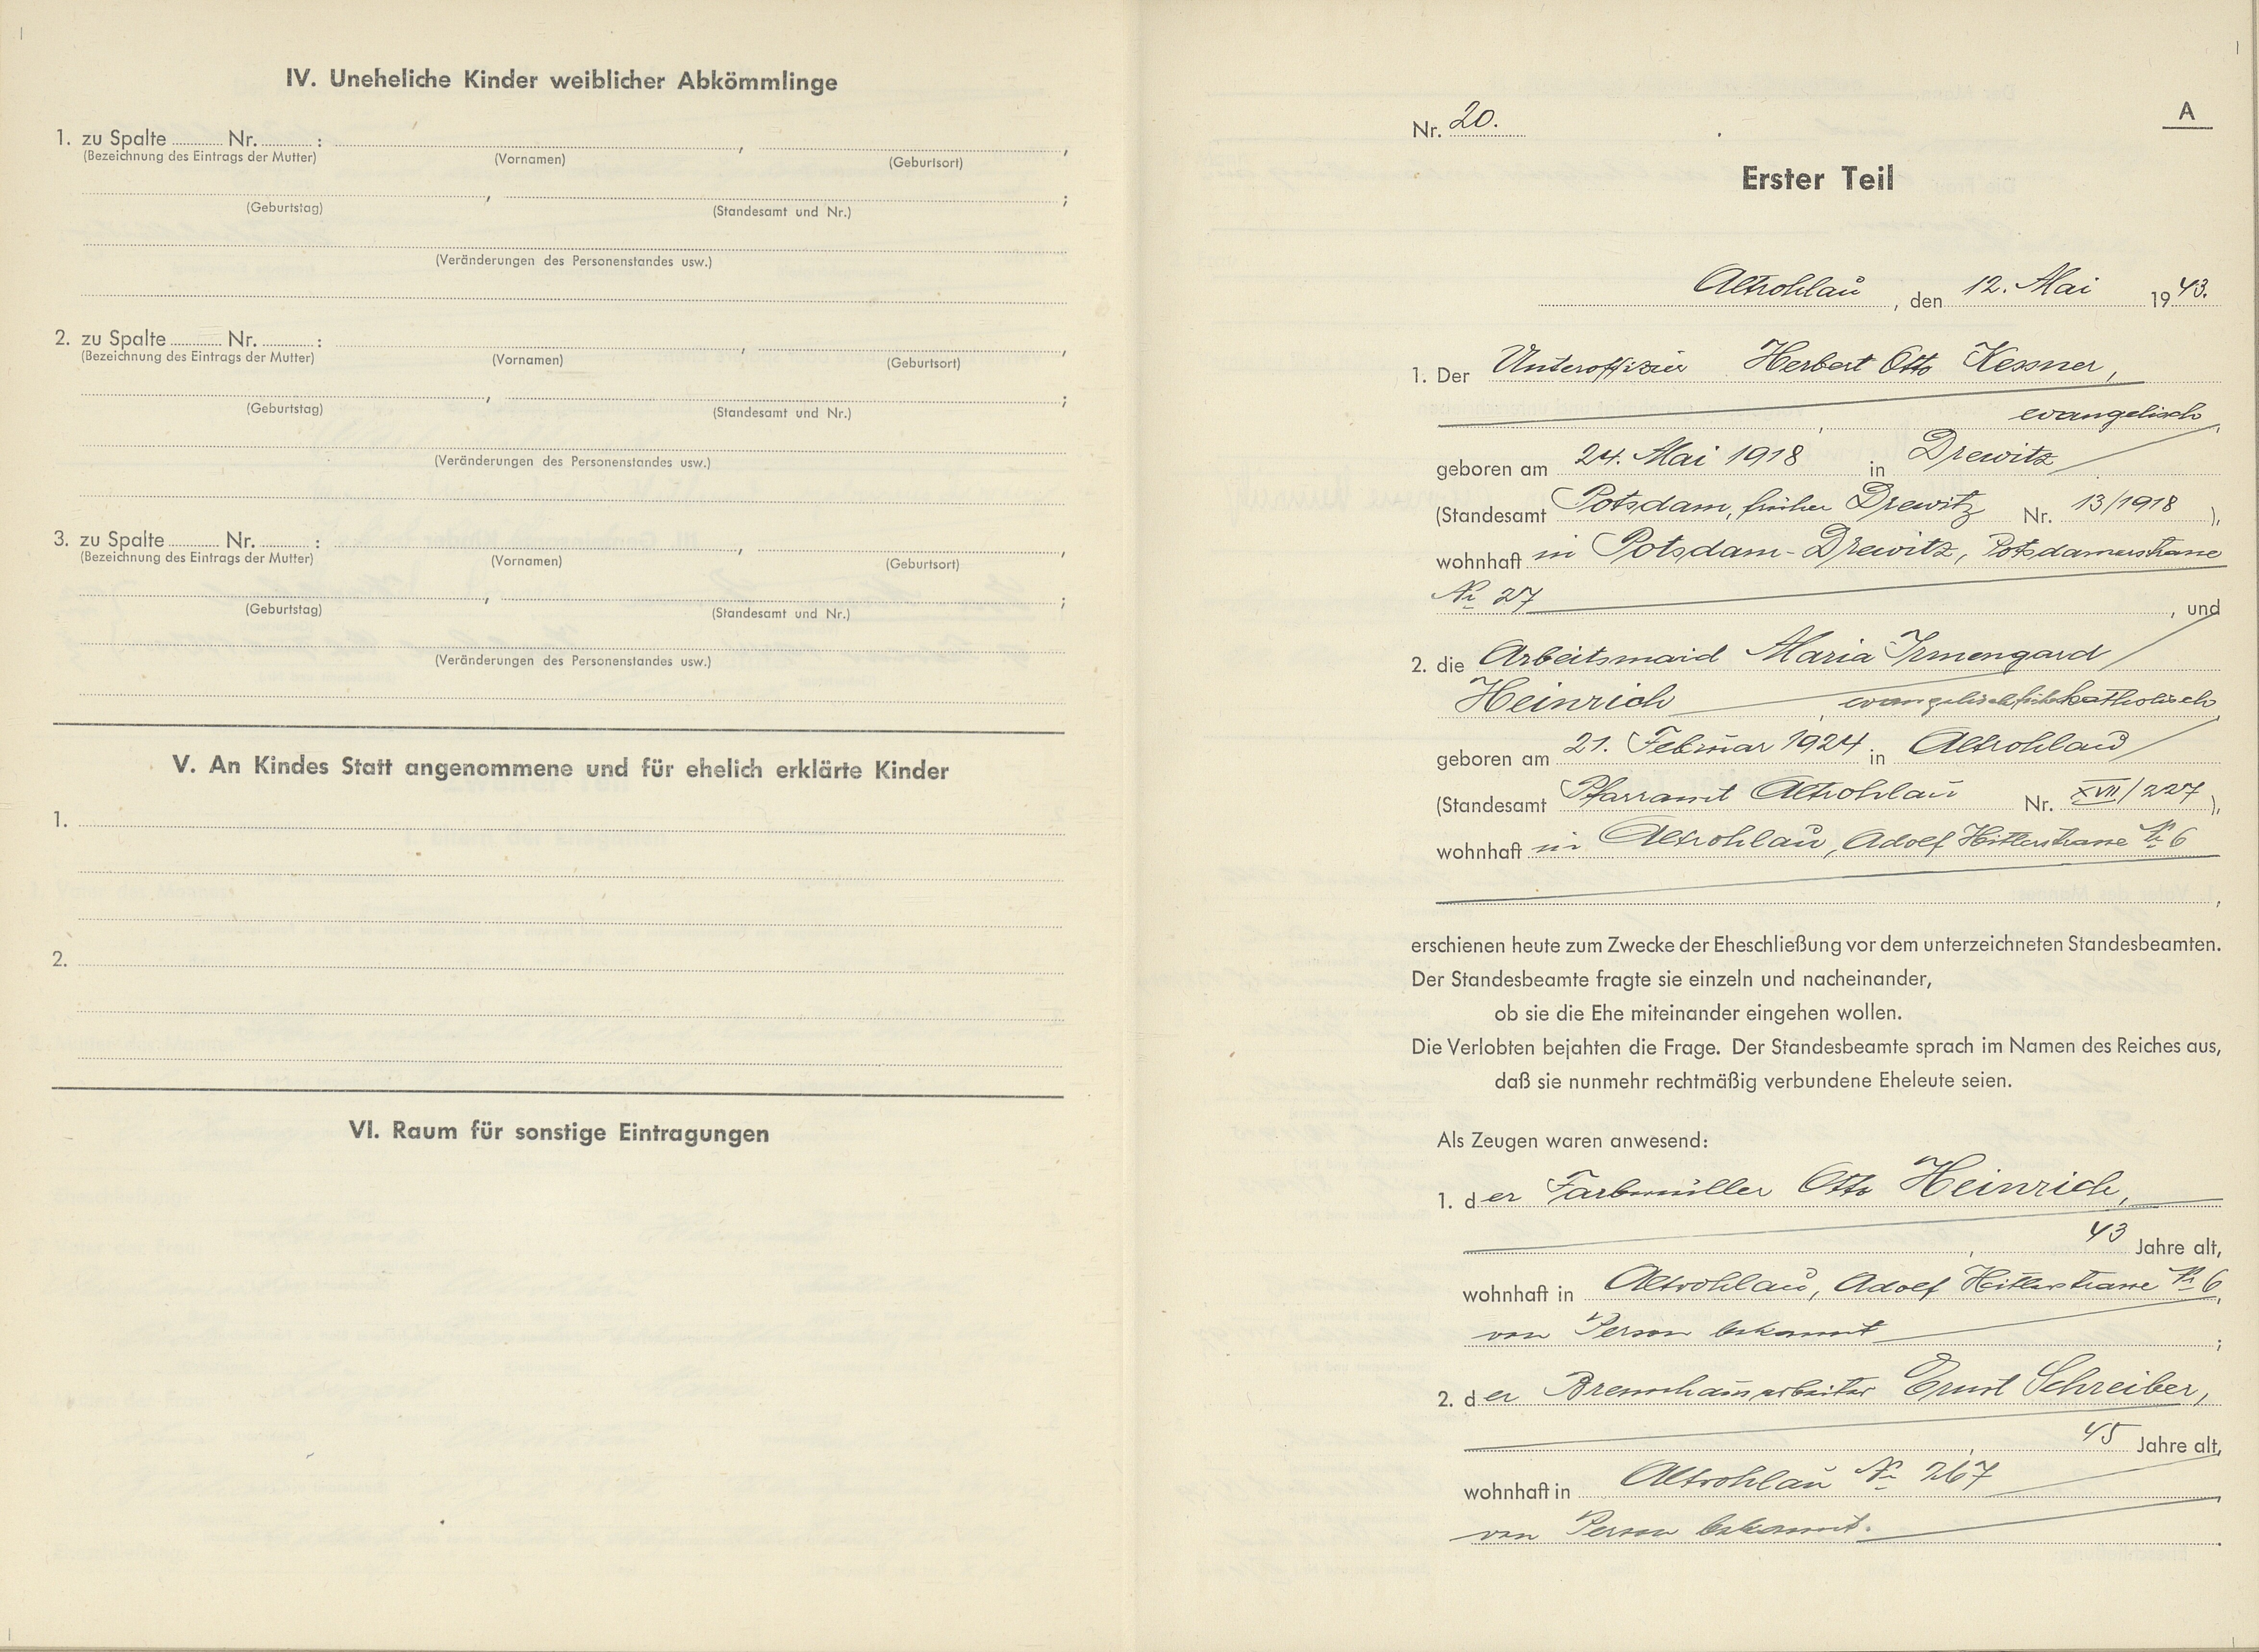 IV. Uneheliche Kinder weiblicher Abkömmlinge
1. zu Spalte ........ Nr. ........ : ........ , ........ ,
(Bezeichnung des Eintrags der Mutter) (Vornamen) (Geburtsort)
........ , ........ ;
(Geburtstag) (Standesamt und Nr.)
(Veränderungen des Personenstandes usw.)
2. zu Spalte ........ Nr. ........ : ........ , ........ ,
(Bezeichnung des Eintrags der Mutter) (Vornamen) (Geburtsort)
........ , ........ ;
(Geburtstag) (Standesamt und Nr.)
(Veränderungen des Personenstandes usw.)
3. zu Spalte ........ Nr. ........ : ........ , ........ ,
(Bezeichnung des Eintrags der Mutter) (Vornamen) (Geburtsort)
........ , ........ ;
(Geburtstag) (Standesamt und Nr.)
(Veränderungen des Personenstandes usw.)
V. An Kindes Statt angenommene und für ehelich erklärte Kinder
1.
2.
VI. Raum für sonstige Eintragungen
A
Nr. 20.
Erster Teil
Altrohlau, den 12. Mai 1943.
1. Der Unteroffizier Herbert Otto Kessner,
, evangelisch,
geboren am 24. Mai 1918 in Drewitz
(Standesamt Potsdam, früher Drewitz Nr. 13/1918 ),
wohnhaft in Potsdam-Drewitz, Potsdamerstrasse
№ 27 , und
2. die Arbeitsmaid Maria Irmengard
Heinrich , evangelisch früher katholisch,
geboren am 21. Februar 1924 in Altrohlau
(Standesamt Pfarramt Altrohlau Nr. XVII/227 ),
wohnhaft in Altrohlau, Adolf Hitlerstrasse № 6
,
erschienen heute zum Zwecke der Eheschließung vor dem unterzeichneten Standesbeamten.
Der Standesbeamte fragte sie einzeln und nacheinander,
ob sie die Ehe miteinander eingehen wollen.
Die Verlobten bejahten die Frage. Der Standesbeamte sprach im Namen des Reiches aus,
daß sie nunmehr rechtmäßig verbundene Eheleute seien.
Als Zeugen waren anwesend:
1. der Farbmüller Otto Heinrich,
, 43 Jahre alt,
wohnhaft in Altrohlau, Adolf Hitlerstrasse № 6,
von Person bekannt ;
2. der Brennhausarbeiter Ernst Schreiber,
, 45 Jahre alt,
wohnhaft in Altrohlau № 267
von Person bekannt.